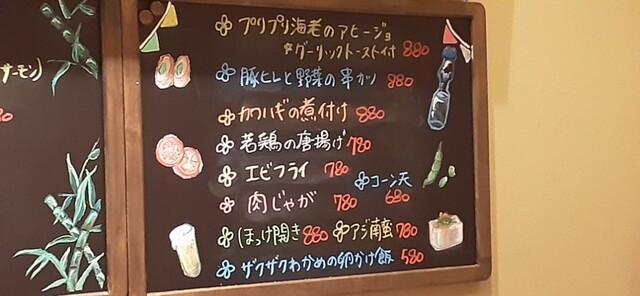 サーモン)
プリプリ海老のアヒージョ
ガーリックトースト付 880
豚ヒレと野菜の串カツ 880
カワハギの煮付け 880
若鶏の唐揚げ 780
エビフライ 780
コーン天 680
肉じゃが 780
ほっけ開き 880 アジ南蛮 780
ザクザクわかめの卵かけ飯 580